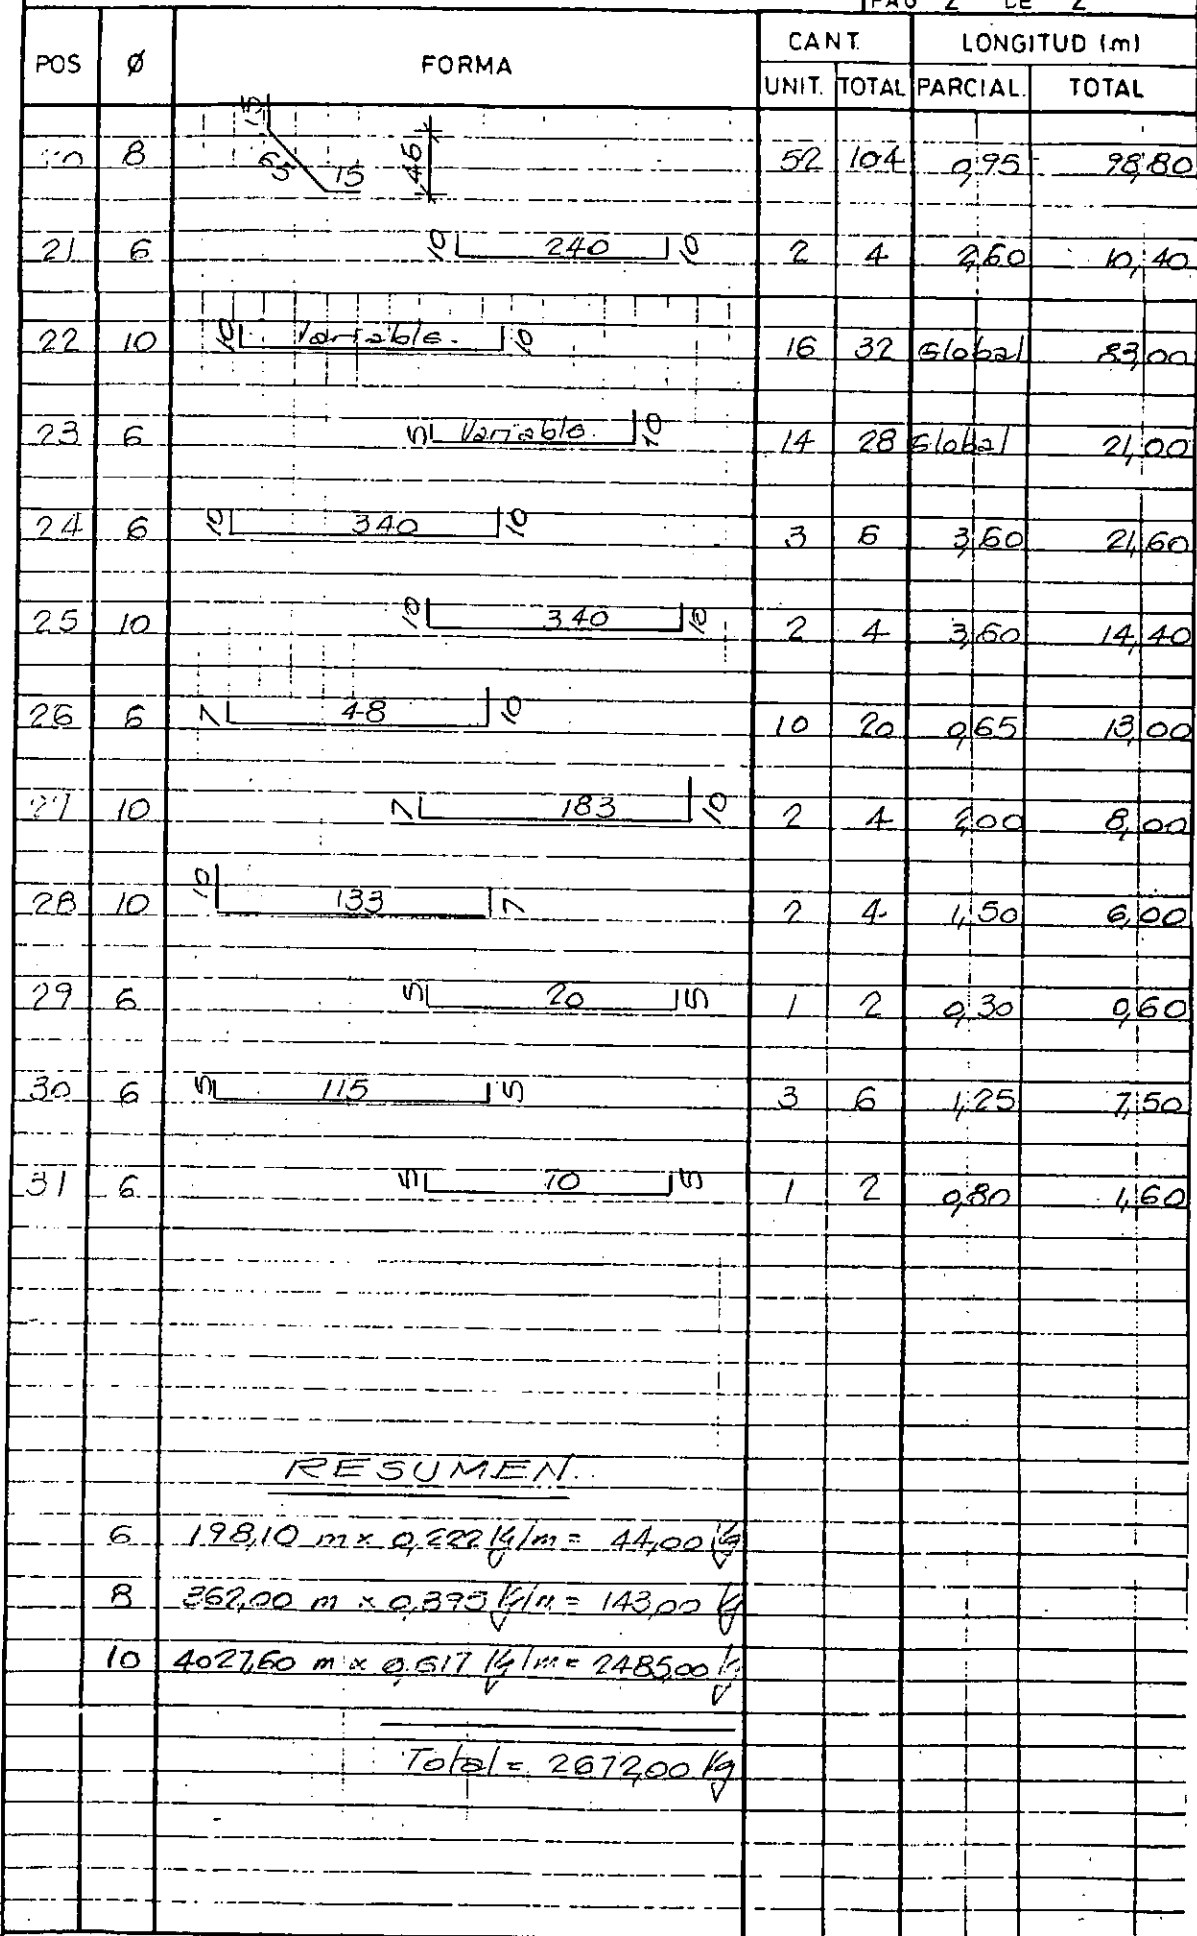 PAG 2 DE 2
POS Ø FORMA CANT. LONGITUD (m)
UNIT. TOTAL PARCIAL. TOTAL
8 15 65 15 46 52 104 0,95 98,80
21 6 10 240 10 2 4 2,60 10,40
22 10 10 Variable. 10 16 32 Global 83,00
23 6 5 Variable. 10 14 28 Global 21,00
24 6 10 340 10 3 6 3,60 21,60
25 10 10 340 10 2 4 3,60 14,40
26 6 7 48 10 10 20 0,65 13,00
27 10 7 183 10 2 4 2,00 8,00
28 10 10 133 7 2 4 1,50 6,00
29 6 5 20 5 1 2 0,30 0,60
30 6 5 115 5 3 6 1,25 7,50
31 6 5 70 5 1 2 0,80 1,60
RESUMEN.
6 198,10 m x 0,222 kg/m = 44,00 kg
8 362,00 m x 0,395 kg/m = 143,00 kg
10 4027,60 m x 0,617 kg/m = 2485,00 kg
Total = 2672,00 kg